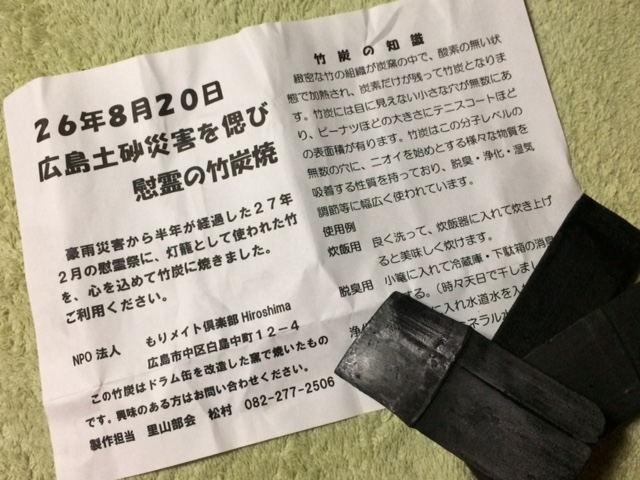 26年8月20日
広島土砂災害を偲び
慰霊の竹炭焼
豪雨災害から半年が経過した27年
2月の慰霊祭に、灯籠として使われた竹
を、心を込めて竹炭に焼きました。
ご利用ください。
NPO 法人 もりメイト倶楽部 Hiroshima
広島市中区白島中町12－4
この竹炭はドラム缶を改造した窯で焼いたもの
です。興味のある方はお問い合わせください。
製作担当 里山部会 松村 082-277-2506
竹炭の知識
緻密な竹の組織が炭窯の中で、酸素の無い状
態で加熱され、炭素だけが残って竹炭となりま
す。竹炭には目に見えない小さな穴が無数にあ
り、ピーナツほどの大きさにテニスコートほど
の表面積が有ります。竹炭はこの分子レベルの
無数の穴に、ニオイを始めとする様々な物質を
吸着する性質を持っており、脱臭・浄化・湿気
調節等に幅広く使われています。
使用例
炊飯用 良く洗って、炊飯器に入れて炊き上げ
ると美味しく炊けます。
脱臭用 小篭に入れて冷蔵庫・下駄箱の消臭
する。（時々天日で干しま
に入れ水道水を入
ネラル水